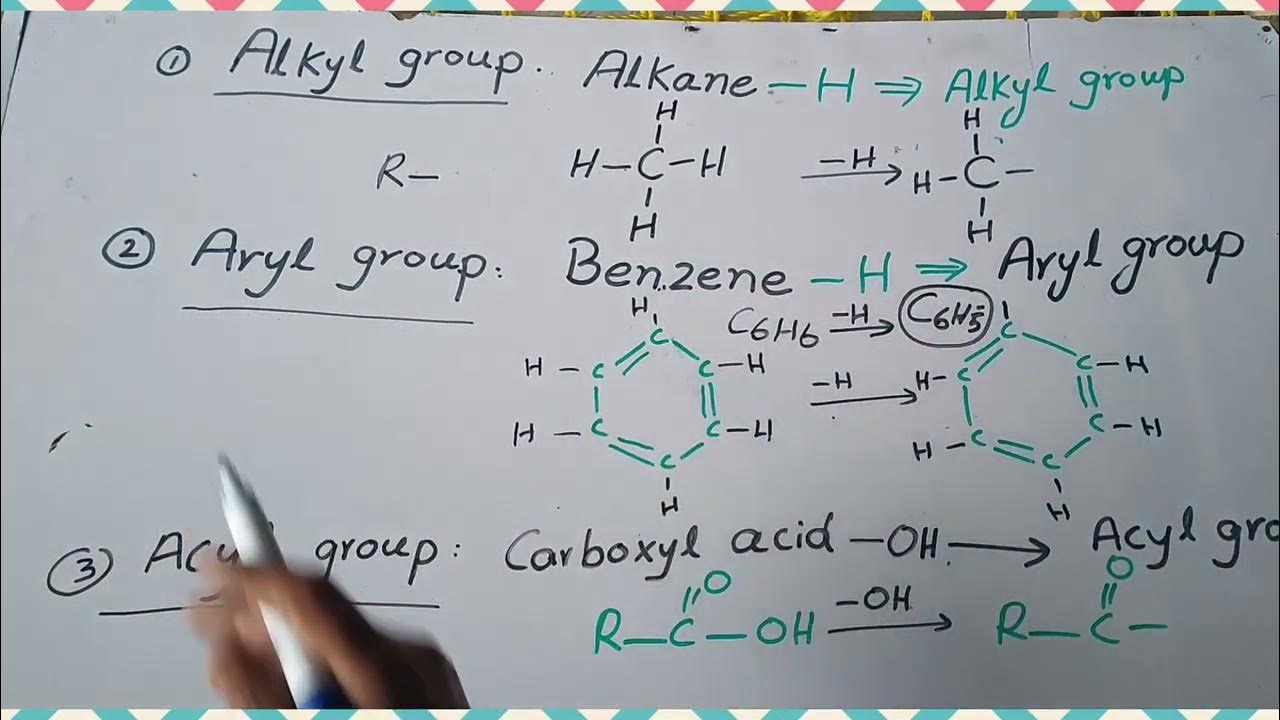 ① Alkyl group. Alkane -H ⇒ Alkyl group
H H
R- H-C-H -H→ H-C-
H H
② Aryl group: Benzene -H ⇒ Aryl group
C6H6 -H→ C6H5-
H
C C
H-C C-H -H→ H-C C-H
H-C C-H H-C C-H
C C
H H
③ group: Carboxyl acid -OH. → Acyl gro
O O
R-C-OH -OH→ R-C-